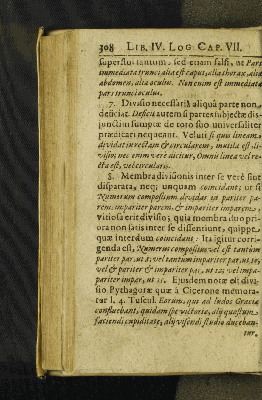 308 LIB. IV. LOG. CAP. VII.
superflui tantum, sed etiam falsi, ut Pars
immediata trunci alia est caput, alia thorax, alia
abdomen, alia oculus. Non enim est immediata
pars trunci oculus.
7. Divisio necessariâ aliquâ parte non
deficiat. Deficit autem si partes subjectæ dis-
junctim sumptæ de toto suo universaliter
prædicari nequeant. Veluti si quis lineam
dividat in rectam & circularem, mutila est di-
visio; nec enim vere dicitur, Omnis linea vel re-
cta est, vel circularis.
8. Membra divisionis inter se verè sint
disparata, neq; unquam coincidant; ut si
Numerum compositum dividas in pariter pa-
rem, impariter parem, & impariter imparem,
vitiosa erit divisio, quia membra duo pri-
ora non satis inter se dissentiunt, quippe
quæ interdum coincidant: Ita igitur corri-
genda est, Numerus compositus vel est tantum
pariter par, ut 8, vel tantum impariter par, ut 10,
vel & pariter & impariter par, ut 12; vel impa-
pariter impar, ut 15. Ejusdem notæ est divi-
sio Pythagoræ quæ à Cicerone memora-
tur l. 4. Tuscul. Eorum, qui ad ludos Græciæ
confluebant, quidam spe victoriæ, alij quæstum
faciendi cupiditate, alij visendi studio ducebau-
tur.